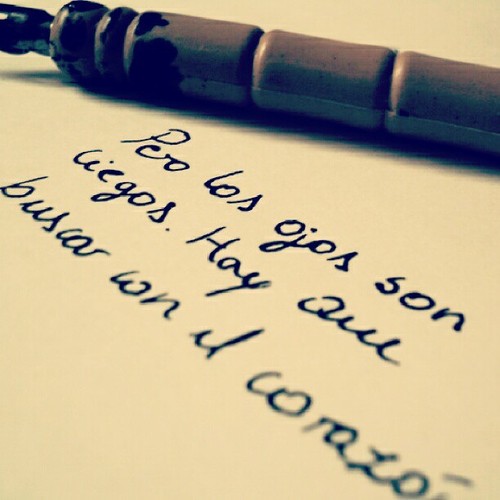 Pero los ojos son
ciegos. Hay que
buscar con el corazó